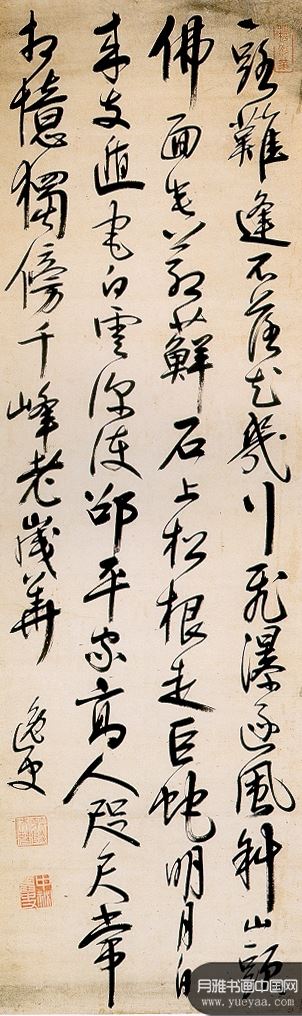 一路難逢不落花幾川飛瀑逐風斜山頭
佛面生蘚石上松根走巨蛇明月自
来支遁宅白雲深邵平家高人咫尺常
相憶獨傍千峰老歲華
逸
月雅书画中国网
www.yueyaa.com